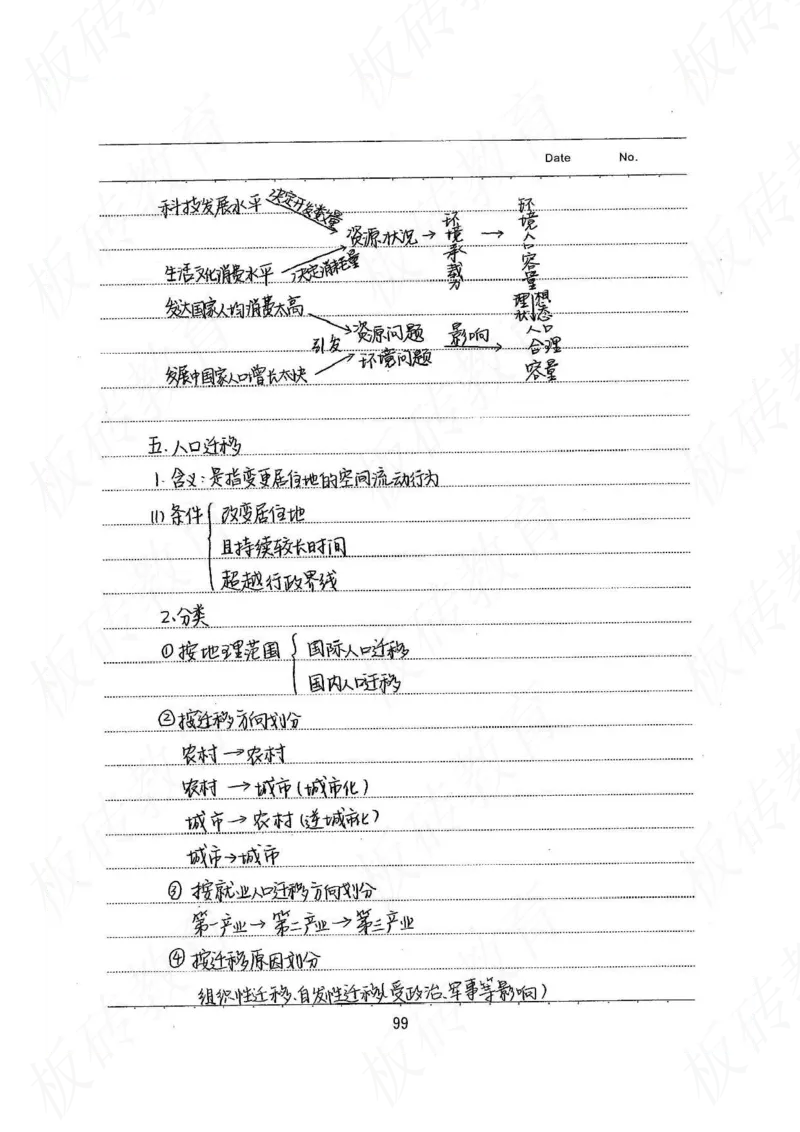 Date No.
科技发展水平 决定开发数量
资源状况 → 环境承载力 → 环境人口容量
生活文化消费水平 决定消耗量
发达国家人均消费太高
引发 资源问题 环境问题 影响 理想状态 人口合理容量
发展中国家人口增长太快
五.人口迁移
1.含义:是指变更居住地的空间流动行为
(1)条件 { 改变居住地
且持续较长时间
超越行政界线
2.分类
①按地理范围 { 国际人口迁移
国内人口迁移
②按迁移方向划分
农村→农村
农村→城市(城市化)
城市→农村(逆城市化)
城市→城市
③按就业人口迁移方向划分
第一产业→第二产业→第三产业
④按迁移原因划分
组织性迁移、自发性迁移(受政治、军事等影响)
99
板砖教育